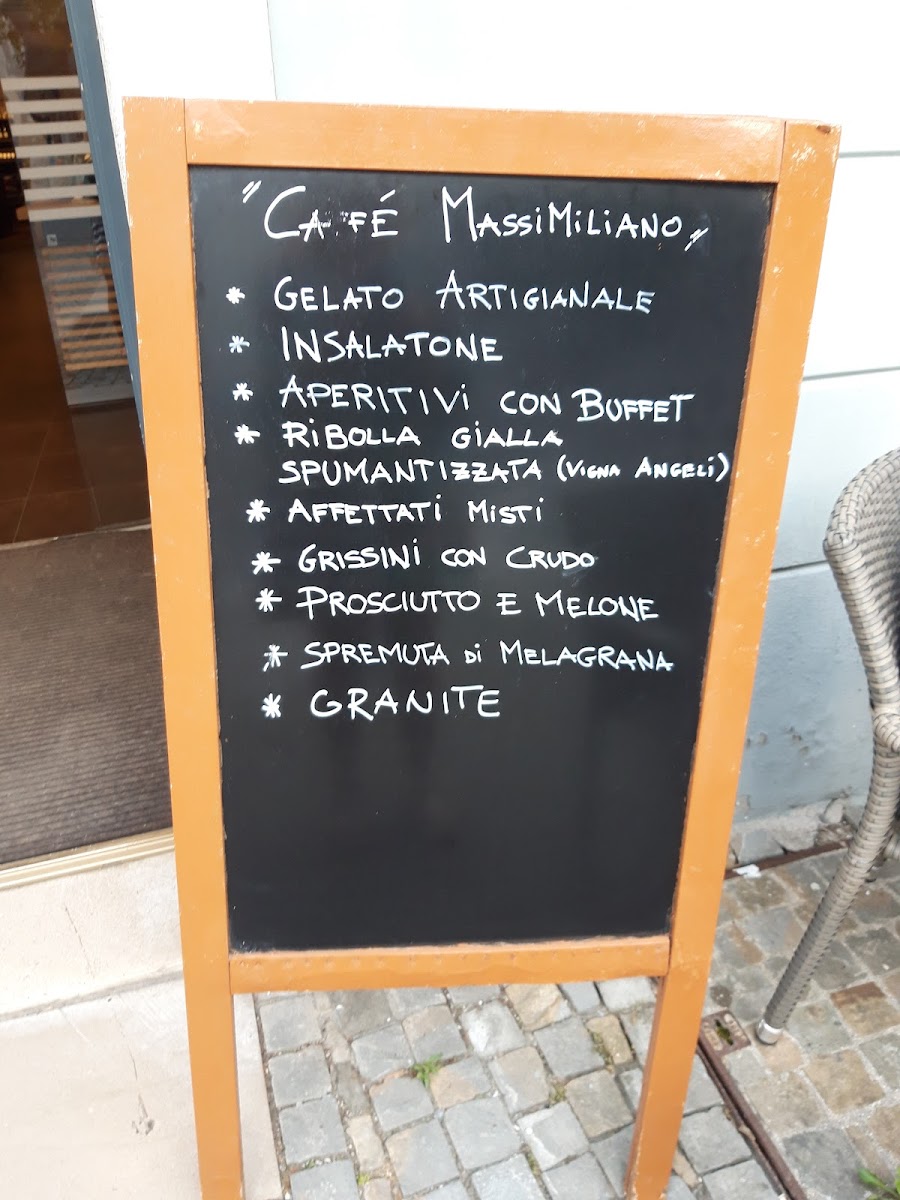 "Caffé Massimiliano"
* Gelato Artigianale
* Insalatone
* Aperitivi con Buffet
* Ribolla Gialla
Spumantizzata (Vigna Angeli)
* Affettati Misti
* Grissini con Crudo
* Prosciutto e Melone
* Spremuta di Melagrana
* Granite